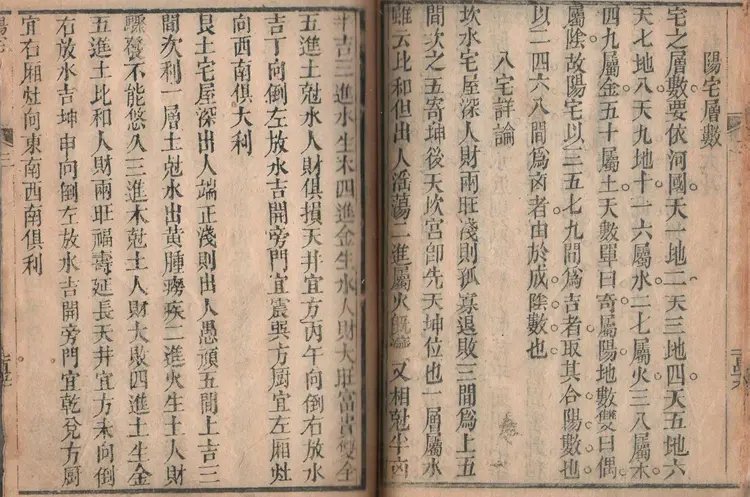 陽宅層數
宅之層數要依河圖天一地二天三地四天五地六
天七地八天九地十一六屬水二七屬火三八屬木
四九屬金五十屬土天數單曰奇屬陽地數雙曰偶
屬陰故陽宅以三五七九間爲吉者取其合陽數也
以二四六八間爲凶者由於成陰數也
八宅詳論
坎水宅屋深人財兩旺淺則孤寡退敗三間爲上五
間次之五寄坤後天坎宮卽先天坤位也一層屬水
雖云比和但出人滛蕩二進屬火旣濟又相尅半凶
半吉三進水生木四進金生水人財大旺富貴雙全
五進土尅水人財俱損天井宜方丙午向倒右放水
吉丁向倒左放水吉開旁門宜震巽方厨宜左厢灶
向西南俱大利
艮土宅屋深出人端正淺則出人愚頑五間上吉三
間次利一層土尅水出黃腫癆疾二進火生土人財
驟發不能悠久三進木尅土人財大敗四進土生金
五進土比和人財兩旺福壽延長天井宜方未向倒
右放水吉坤申向倒左放水吉開旁門宜乾兌方厨
宜右厢灶向東南西南俱利